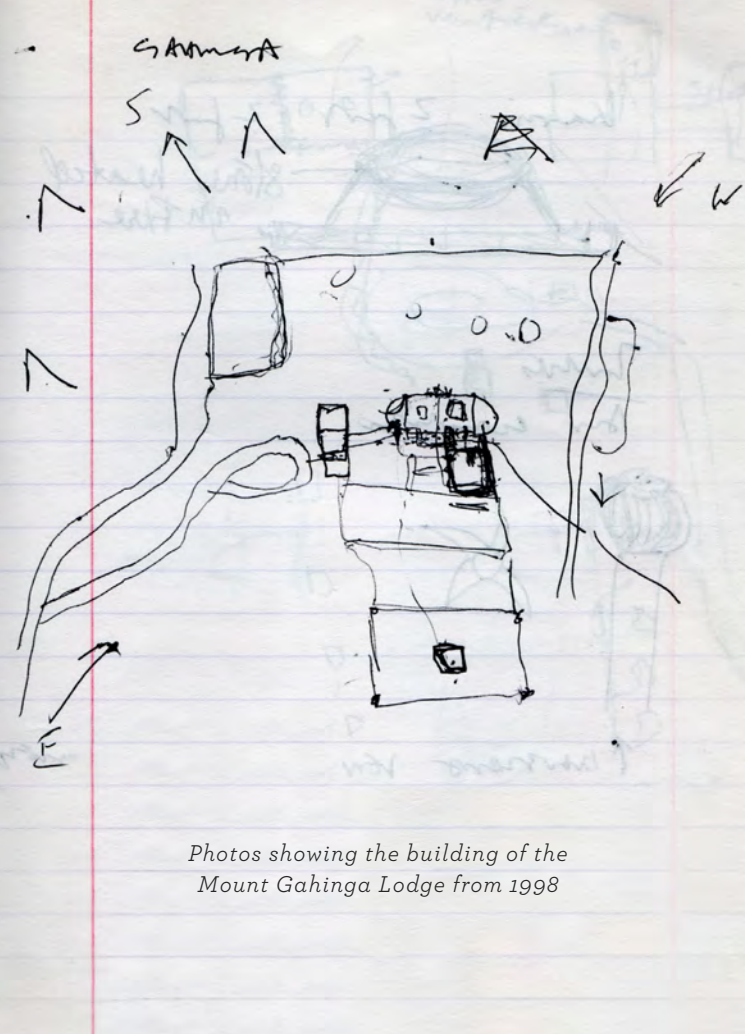 GAHINGA
S
W
E
Photos showing the building of the
Mount Gahinga Lodge from 1998